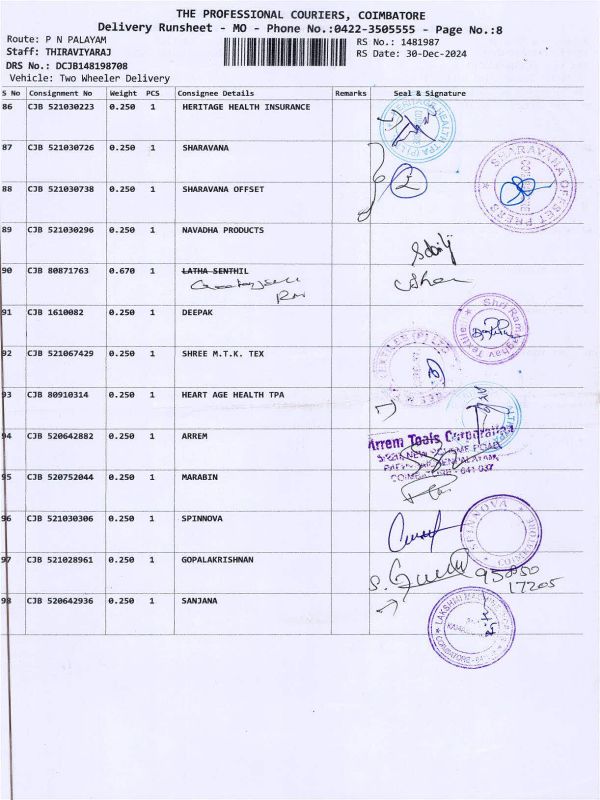 THE PROFESSIONAL COURIERS, COIMBATORE
Delivery Runsheet - MO - Phone No.:0422-3505555 - Page No.:8
Route: P N PALAYAM
RS No.: 1481987
Staff: THIRAVIYARAJ
RS Date: 30-Dec-2024
DRS No.: DCJB148198708
Vehicle: Two Wheeler Delivery
S No Consignment No Weight PCS Consignee Details Remarks Seal & Signature
86 CJB 521030223 0.250 1 HERITAGE HEALTH INSURANCE
87 CJB 521030726 0.250 1 SHARAVANA
88 CJB 521030738 0.250 1 SHARAVANA OFFSET
SHARAVANA OFFSET PRESS
89 CJB 521030296 0.250 1 NAVADHA PRODUCTS
90 CJB 80871763 0.670 1 LATHA SENTHIL
91 CJB 1610082 0.250 1 DEEPAK
Shri Ramraghav Textile
92 CJB 521067429 0.250 1 SHREE M.T.K. TEX
93 CJB 80910314 0.250 1 HEART AGE HEALTH TPA
94 CJB 520642882 0.250 1 ARREM
Arrem Tools Corporation
COIMBATORE - 641 037
95 CJB 520752044 0.250 1 MARABIN
96 CJB 521030306 0.250 1 SPINNOVA
SPINNOVA
97 CJB 521028961 0.250 1 GOPALAKRISHNAN
95850
17205
98 CJB 520642936 0.250 1 SANJANA